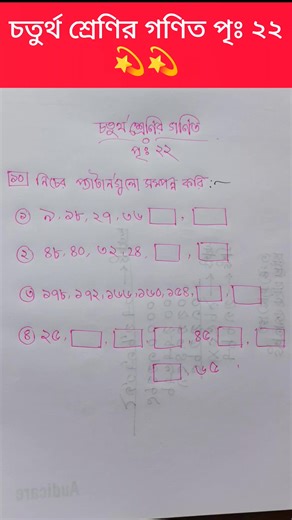 চতুর্থ শ্রেণির গণিত পৃঃ ২২
চতুর্থ শ্রেণির গণিত
পৃঃ ২২
১০ নিচের প্যাটার্নগুলো সম্পন্ন করি :~
১ ৯, ১৮, ২৭, ৩৬ ,
২ ৪৮, ৪০, ৩২, ২৪, ,
৩ ১৭৮, ১৭২, ১৬৬, ১৬০, ১৫৪, ,
৪ ২৫, , , , ৪৫, ,
৬৫
Audicare